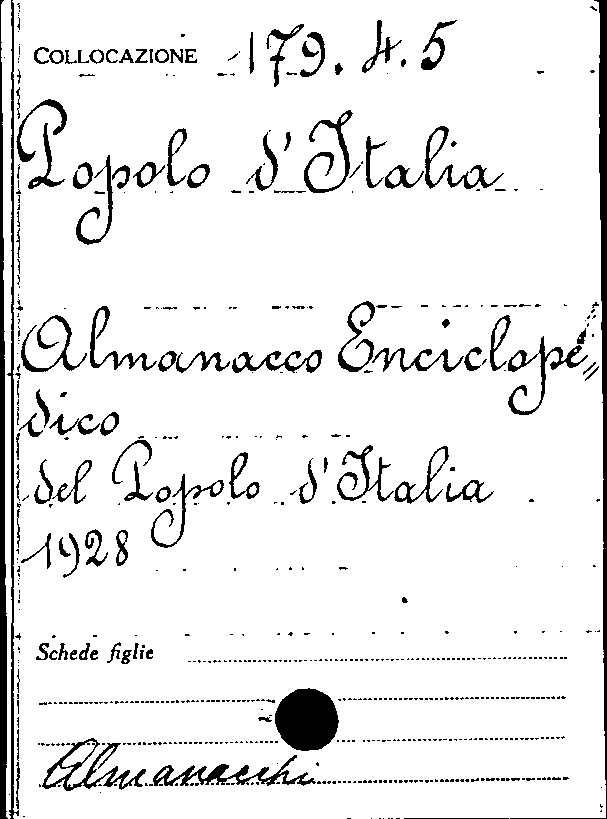 COLLOCAZIONE 179.4.5
Popolo d'Italia
Almanacco Enciclope„
dico
del Popolo d'Italia
1928
Schede figlie
Almanacchi